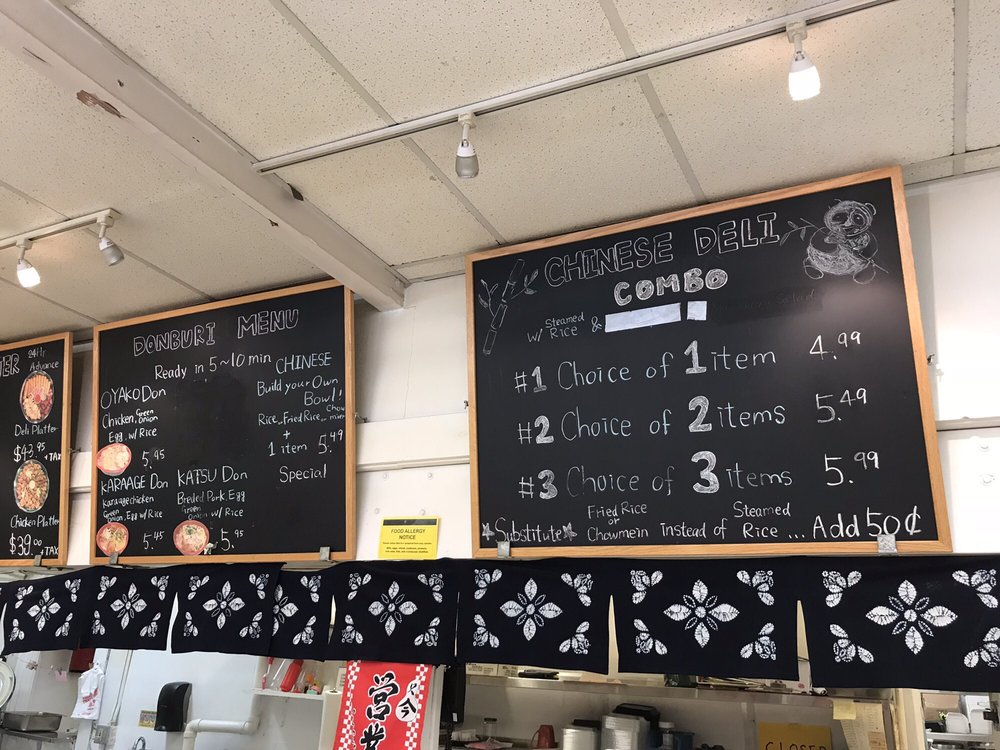 ER 24Hr
Advance
Deli Platter
$43.95
+TAX
Chicken Platter
$39.00
+TAX
DONBURI MENU
Ready in 5~10 min
OYAKO Don
Chicken, Green Onion
Egg, w/ Rice
5.95
KARAAGE Don
Karaage chicken
Green Onion, Egg w/ Rice
5.45
KATSU Don
Breded Pork, Egg
Green Onion w/ Rice
5.95
CHINESE
Build your Own
Bowl!
Rice, Fried Rice, Chow mein
+
1 item 5.49
Special
CHINESE DELI
COMBO
w/ Steamed Rice &
#1 Choice of 1 item 4.99
#2 Choice of 2 items 5.49
#3 Choice of 3 items 5.99
*Substitute* Fried Rice or Chowmein Instead of Steamed Rice ... Add 50¢
FOOD ALLERGY
NOTICE
営業
CLOSED